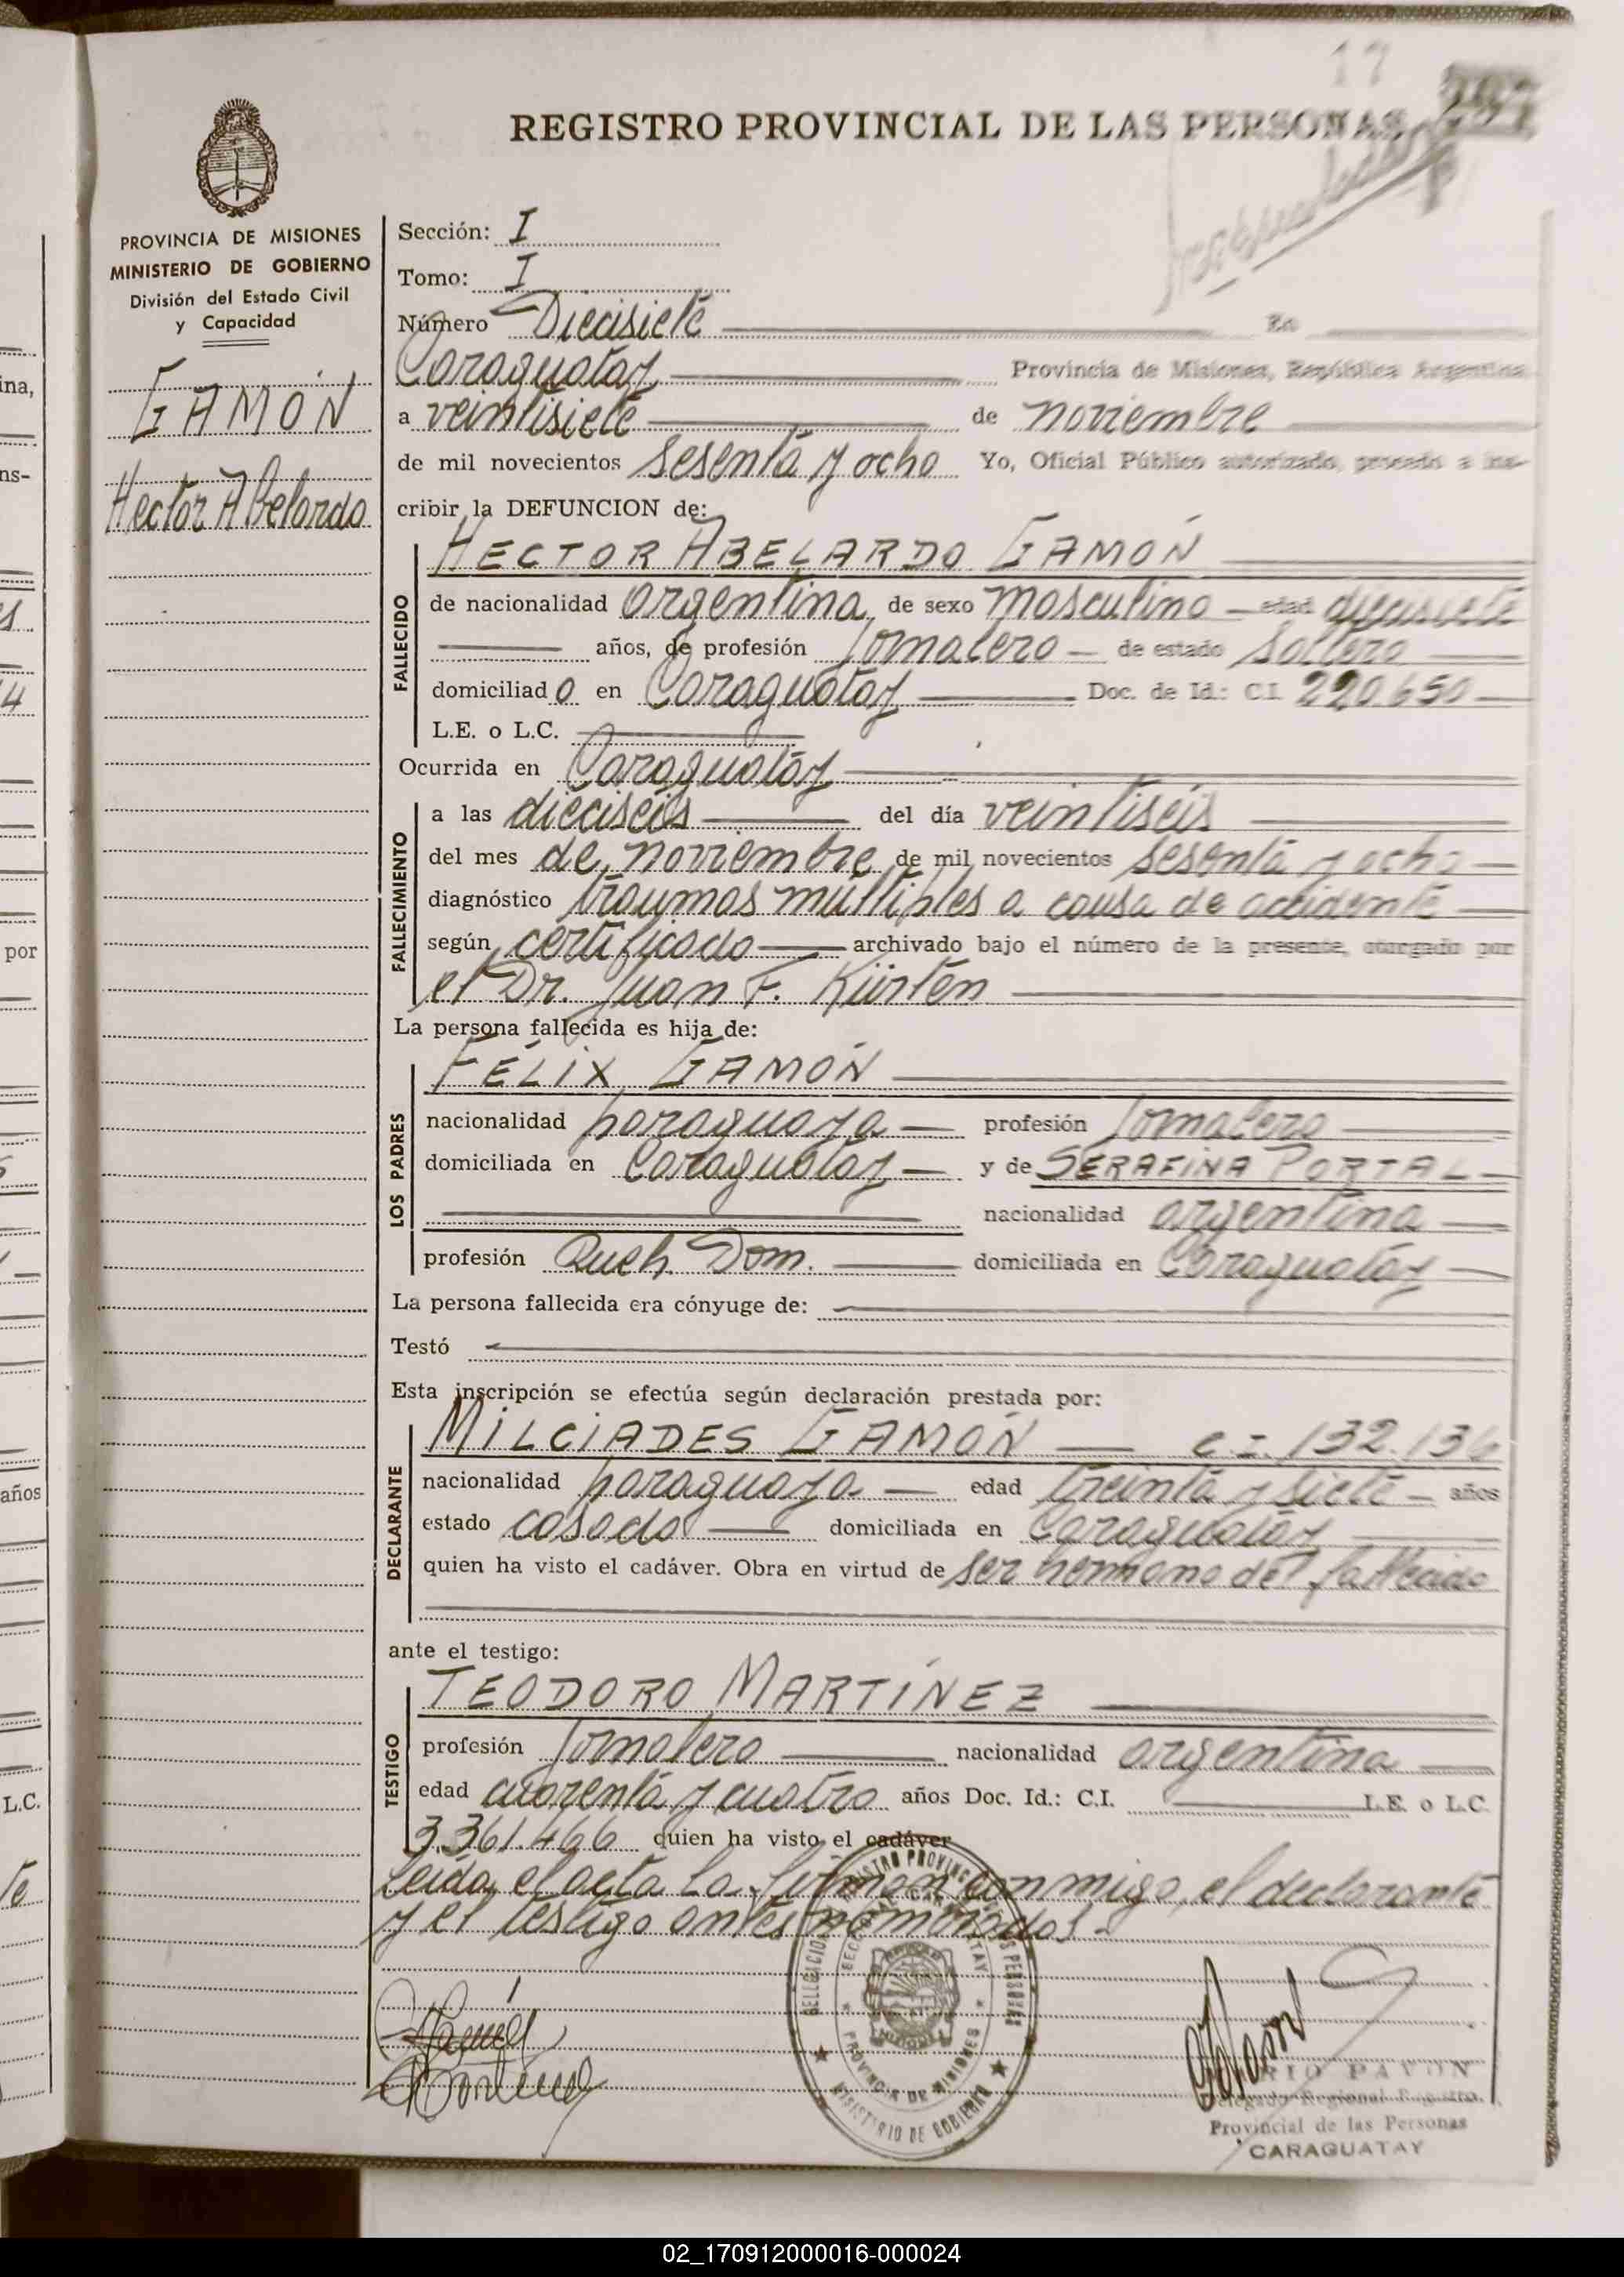 17
287
REGISTRO PROVINCIAL DE LAS PERSONAS
Caraguatay
PROVINCIA DE MISIONES
MINISTERIO DE GOBIERNO
División del Estado Civil
y Capacidad
GAMÓN
Hector Abelardo
Sección: I
Tomo: I
Número Diecisiete En
Caraguatay Provincia de Misiones, República Argentina
a veintisiete de noviembre
de mil novecientos sesenta y ocho Yo, Oficial Público autorizado, procedo a ins-
cribir la DEFUNCION de:
FALLECIDO
HECTOR ABELARDO GAMÓN
de nacionalidad argentina de sexo masculino edad diecisiete
años, de profesión Jornalero de estado soltero
domiciliado en Caraguatay Doc. de Id.: C.I. 220.650
L.E. o L.C.
Ocurrida en Caraguatay
FALLECIMIENTO
a las dieciseis del día veintiseis
del mes de noviembre de mil novecientos sesenta y ocho
diagnóstico traumas múltiples a causa de accidente
según certificado archivado bajo el número de la presente, otorgado por
el Dr. Juan F. Kürten
La persona fallecida es hija de:
LOS PADRES
FÉLIX GAMÓN
nacionalidad paraguaya profesión Jornalero
domiciliada en Caraguatay y de SERAFINA PORTAL
nacionalidad argentina
profesión Queh. Dom. domiciliada en Caraguatay
La persona fallecida era cónyuge de:
Testó
Esta inscripción se efectúa según declaración prestada por:
DECLARANTE
MILCIADES GAMÓN C.I. 132.136
nacionalidad paraguaya edad treinta y siete años
estado casado domiciliada en Caraguatay
quien ha visto el cadáver. Obra en virtud de ser hermano del fallecido
ante el testigo:
TESTIGO
TEODORO MARTÍNEZ
profesión Jornalero nacionalidad argentina
edad cuarenta y cuatro años Doc. Id.: C.I. L.E. o L.C.
3.361.466 quien ha visto el cadáver
Leida el acta la firman conmigo, el declarante
y el testigo antes nombrados.-
PROVINCIA DE MISIONES
MINISTERIO DE GOBIERNO
RIO PAVON
Delegado Regional Registro
Provincial de las Personas
CARAGUATAY
ina,
ns-
por
años
L.C.
02_170912000016-000024